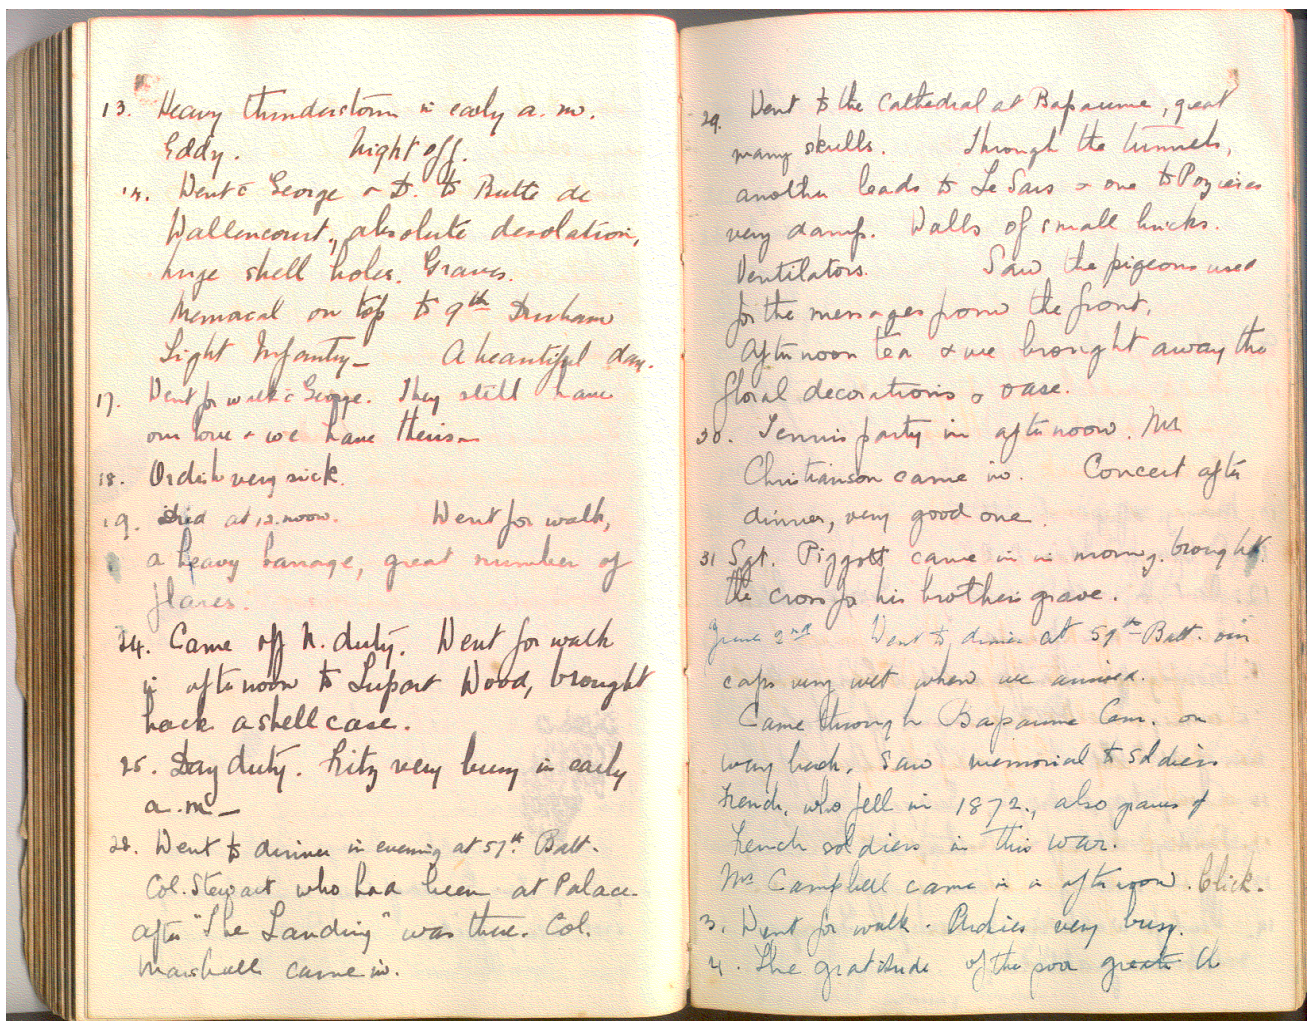 13. Heavy thunderstorm in early a.m.
Eddy. Night off.
14. Went c̄ George & D. to Butte de
Wallencourt, absolute desolation,
huge shell holes. Graves.
Memorial on top to 9th Durham
Light Infantry— A beautiful day.
17. Went for walk c̄ George. They still have
our love & we have theirs—
18. very sick.
19. died at 12.noon. Went for walk,
a heavy barrage, great number of
flares.
24. Came off N. duty. Went for walk
in afternoon to Lupart Wood, brought
back a shell case.
25. Day duty. Fritz very busy in early
a.m—
28. Went to dinner in evening at 57th Batt.
Col. Stewart who had been at Palace
after "The Landing" was there. Col.
Marshall came in.
29. Went to the Cathedral at Bapaume, great
many skulls. Through the tunnels,
another leads to Le Sars & one to Pozieres
very damp. Walls of small bricks.
Ventilators. Saw the pigeons used
for the messages from the front.
Afternoon tea & we brought away the
floral decorations & vase.
30. Tennis party in afternoon. Mr
Christianson came in. Concert after
dinner, very good one.
31 Sgt. Piggott came in in morng. brought
the cross for his brothers grave.
June 2nd Went to dinner at 57th Batt. our
caps very wet when we arrived.
Came through Bapaume Cem. on
way back. Saw memorial to Soldiers
French, who fell in 1872., also graves of
French soldiers in this war.
Mr Campbell came in in afternoon. Click.
3. Went for walk. Archies very busy.
4. The gratitude of the poor